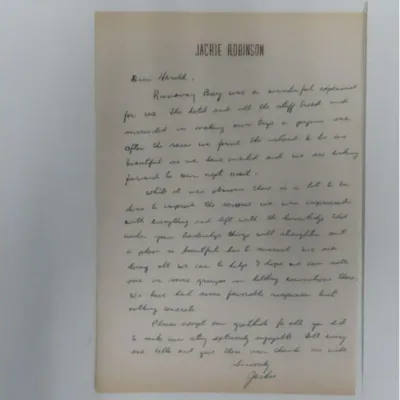 JACKIE ROBINSON
Dear Harold,
Runaway Bay was a wonderful experience
for us. The hotel and all the staff tried and
succeeded in making our days a
After the races we found the island to be as
beautiful as we have and we are looking
forward to our next visit.
While it was obvious there is a lot to be
done to improve the we were impressed
with everything and left with the knowledge that
under your leadership things will straighten out
a place so beautiful has to succeed. We are
doing all we can to help. I hope we can
one or some groups in holding there.
We have had some favorable responses but
nothing concrete.
Please accept our gratitude for all you did
to make our stay extremely enjoyable.
Sincerely
Jackie